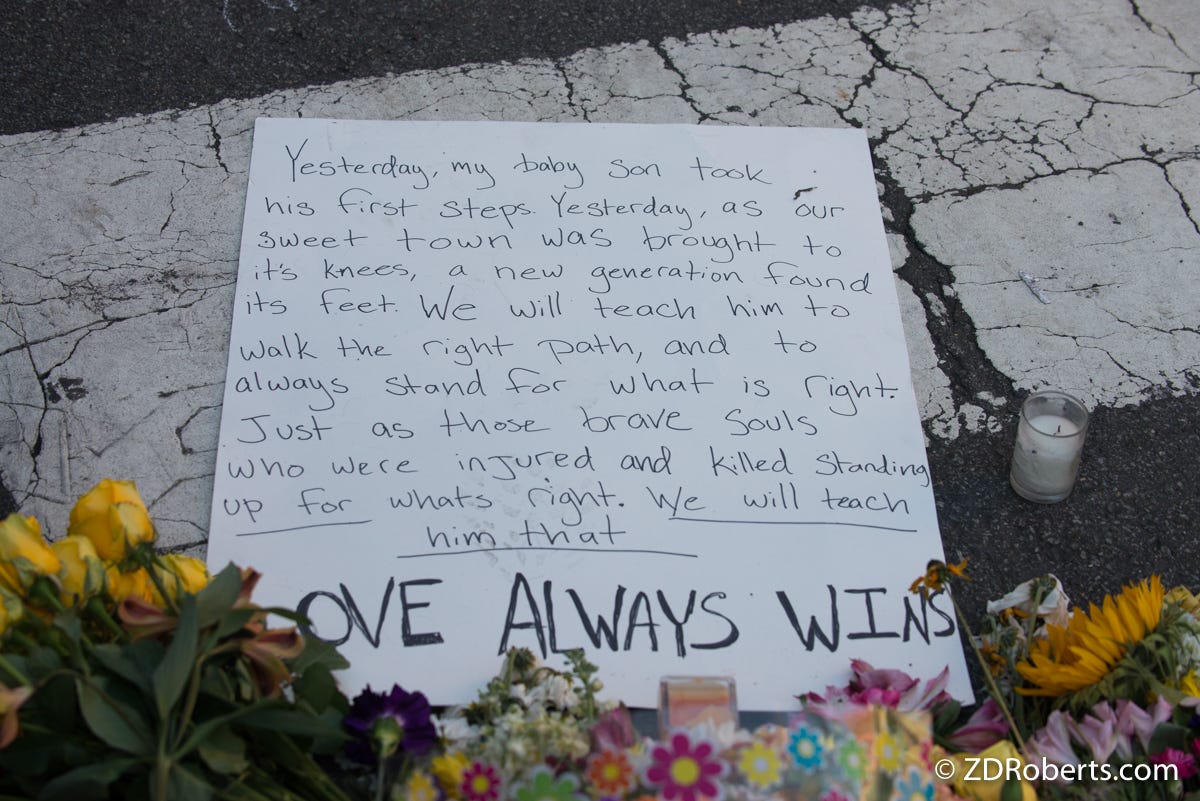 Yesterday, my baby son took
his first steps. Yesterday, as our
sweet town was brought to
it's knees, a new generation found
its feet. We will teach him to
walk the right path, and to
always stand for what is right.
Just as those brave souls
who were injured and killed standing
up for whats right. We will teach
him that
OVE ALWAYS WINS
© ZDRoberts.com